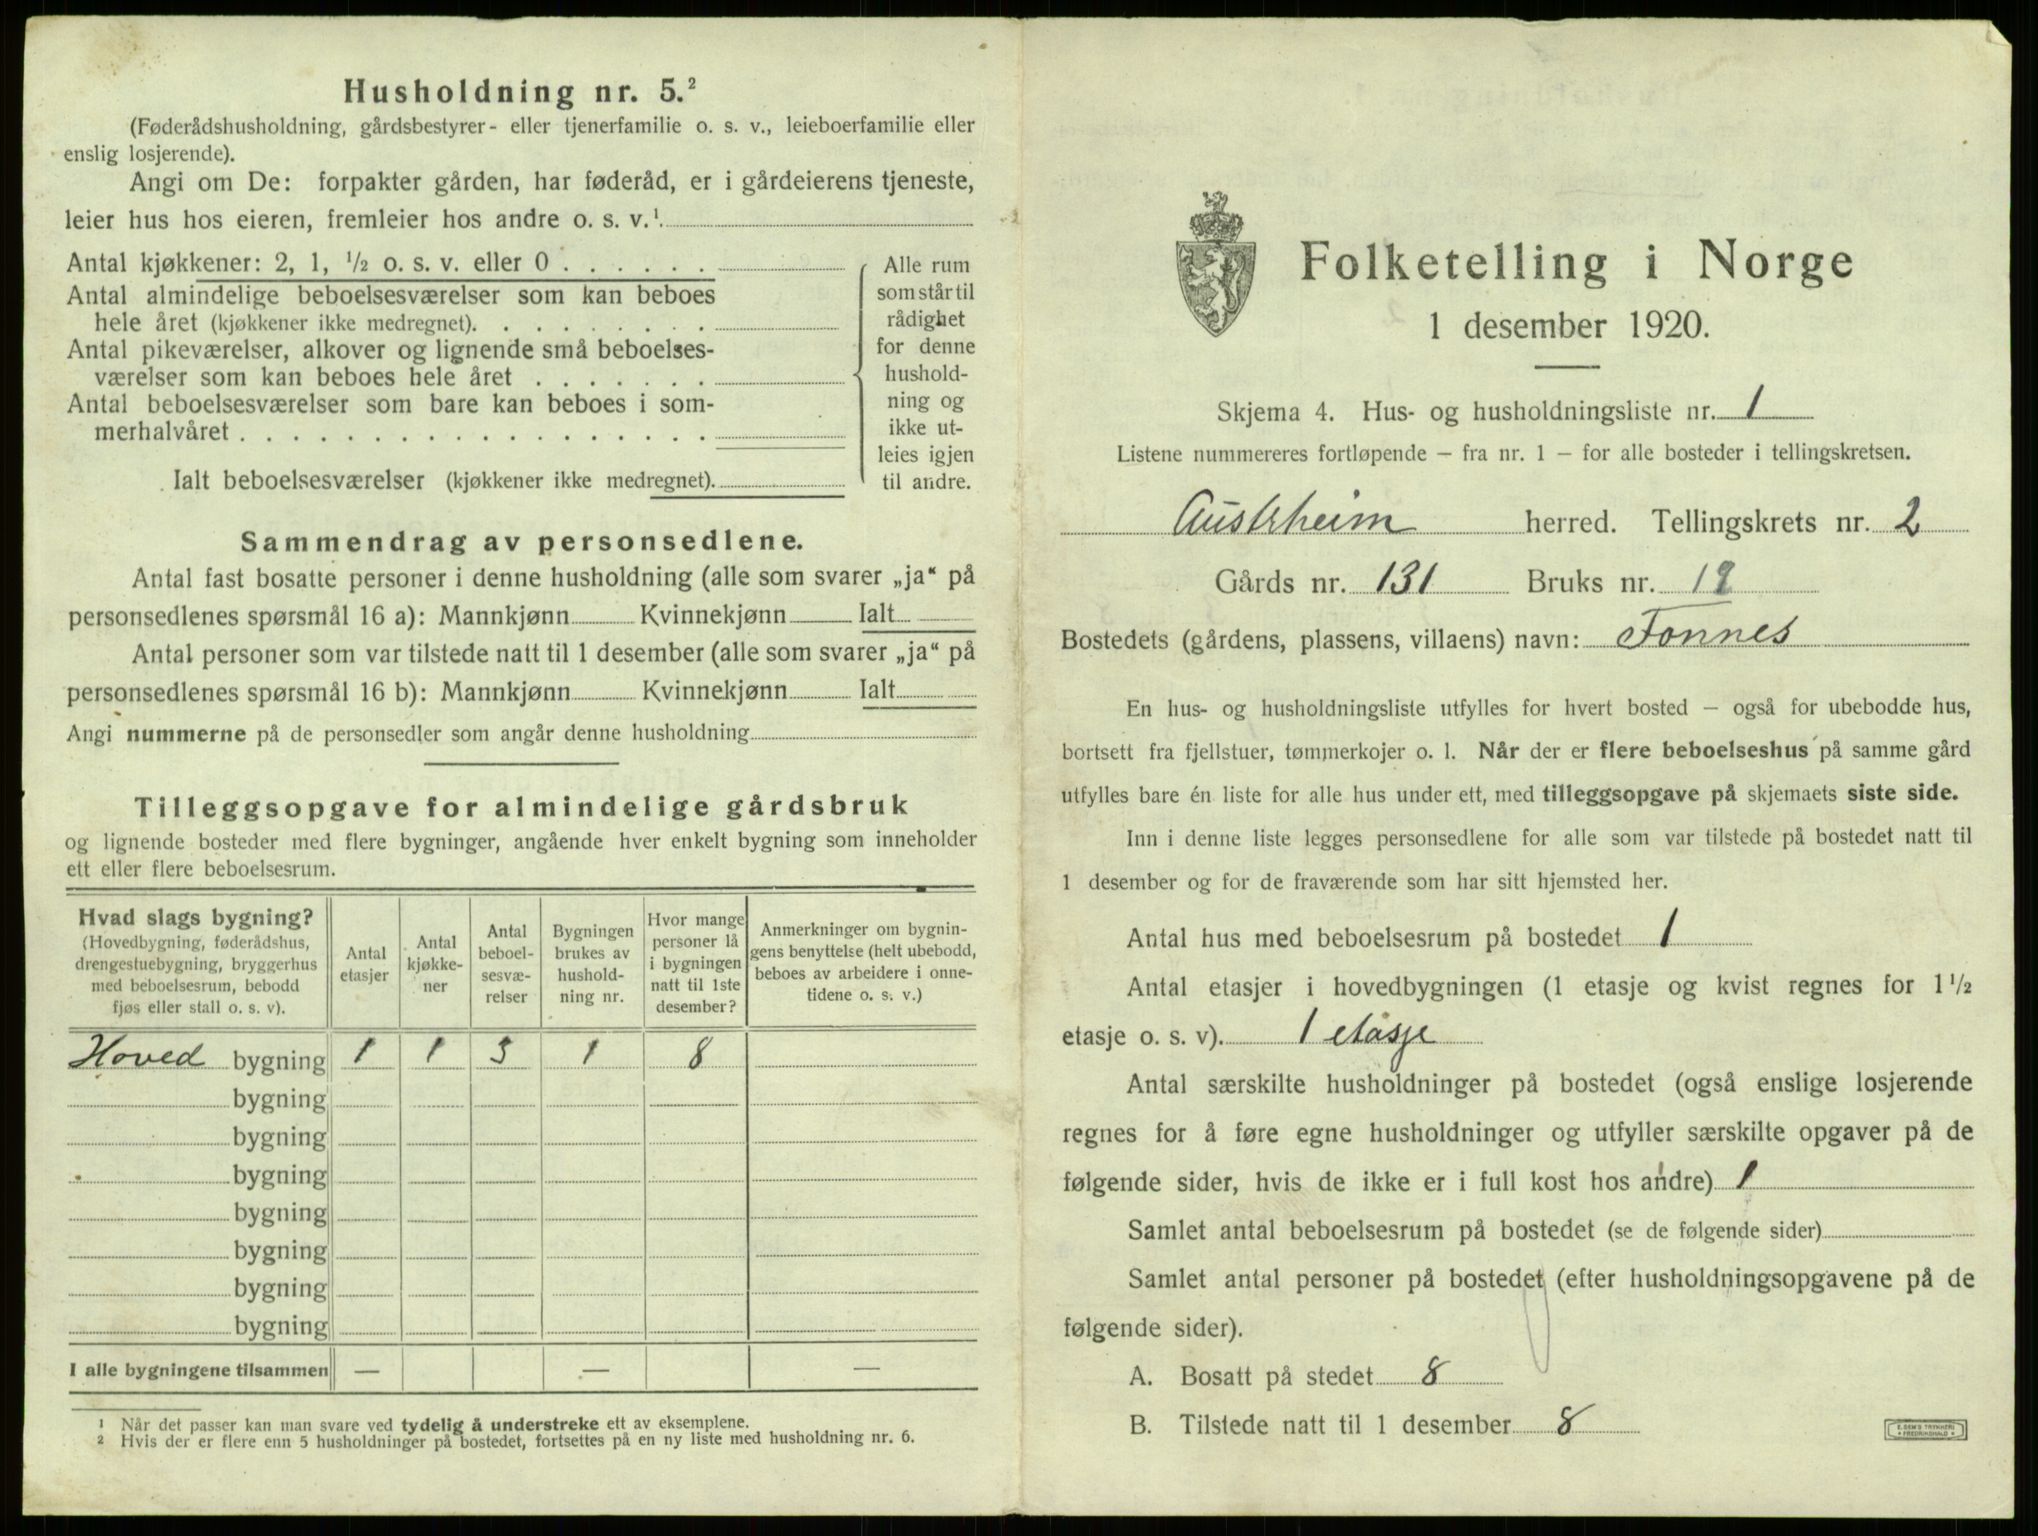 Husholdning nr. 5.²
(Føderådshusholdning, gårdsbestyrer- eller tjenerfamilie o. s. v., leieboerfamilie eller
enslig losjerende).
Angi om De: forpakter gården, har føderåd, er i gårdeierens tjeneste,
leier hus hos eieren, fremleier hos andre o. s. v.¹.
Antal kjøkkener: 2, 1, ½ o. s. v. eller 0 . . . . . .
Antal almindelige beboelsesværelser som kan beboes
hele året (kjøkkener ikke medregnet). . . . . . . . .
Antal pikeværelser, alkover og lignende små beboelses-
værelser som kan beboes hele året . . . . . . .
Antal beboelsesværelser som bare kan beboes i som-
merhalvåret . . . . . . . . . . . . . . . . . .
Ialt beboelsesværelser (kjøkkener ikke medregnet).
Alle rum
som står til
rådighet
for denne
hushold-
ning og
ikke ut-
leies igjen
til andre.
Sammendrag av personsedlene.
Antal fast bosatte personer i denne husholdning (alle som svarer „ja“ på
personsedlenes spørsmål 16 a): Mannkjønn Kvinnekjønn Ialt
Antal personer som var tilstede natt til 1 desember (alle som svarer „ja“ på
personsedlenes spørsmål 16 b): Mannkjønn Kvinnekjønn Ialt
Angi nummerne på de personsedler som angår denne husholdning
Tilleggsopgave for almindelige gårdsbruk
og lignende bosteder med flere bygninger, angående hver enkelt bygning som inneholder
ett eller flere beboelsesrum.
Hvad slags bygning?
(Hovedbygning, føderådshus,
drengestuebygning, bryggerhus
med beboelsesrum, bebodd
fjøs eller stall o. s. v).
Antal
etasjer
Antal
kjøkke-
ner
Antal
beboel-
sesvæ-
relser
Bygningen
brukes av
hushold-
ning nr.
Hvor mange
personer lå
i bygningen
natt til 1ste
desember?
Anmerkninger om bygnin-
gens benyttelse (helt ubebodd,
beboes av arbeidere i onne-
tidene o. s. v.)
Hoved bygning 1 1 3 1 8
bygning
bygning
bygning
bygning
bygning
bygning
bygning
I alle bygningene tilsammen — — —
¹ Når det passer kan man svare ved tydelig å understreke ett av eksemplene.
² Hvis der er flere enn 5 husholdninger på bostedet, fortsettes på en ny liste med husholdning nr. 6.
Folketelling i Norge
1 desember 1920.
Skjema 4. Hus- og husholdningsliste nr. 1
Listene nummereres fortløpende — fra nr. 1 — for alle bosteder i tellingskretsen.
Austrheim herred. Tellingskrets nr. 2
Gårds nr. 131 Bruks nr.
Bostedets (gårdens, plassens, villaens) navn: Fonnes
En hus- og husholdningsliste utfylles for hvert bosted — også for ubebodde hus,
bortsett fra fjellstuer, tømmerkojer o. l. Når der er flere beboelseshus på samme gård
utfylles bare én liste for alle hus under ett, med tilleggsopgave på skjemaets siste side.
Inn i denne liste legges personsedlene for alle som var tilstede på bostedet natt til
1 desember og for de fraværende som har sitt hjemsted her.
Antal hus med beboelsesrum på bostedet 1
Antal etasjer i hovedbygningen (1 etasje og kvist regnes for 1½
etasje o. s. v). 1 etasje
Antal særskilte husholdninger på bostedet (også enslige losjerende
regnes for å føre egne husholdninger og utfyller særskilte opgaver på de
følgende sider, hvis de ikke er i full kost hos andre) 1
Samlet antal beboelsesrum på bostedet (se de følgende sider)
Samlet antal personer på bostedet (efter husholdningsopgavene på de
følgende sider).
A. Bosatt på stedet 8
B. Tilstede natt til 1 desember 8
E. SEM'S TRYKKERI
FREDRIKSHALD